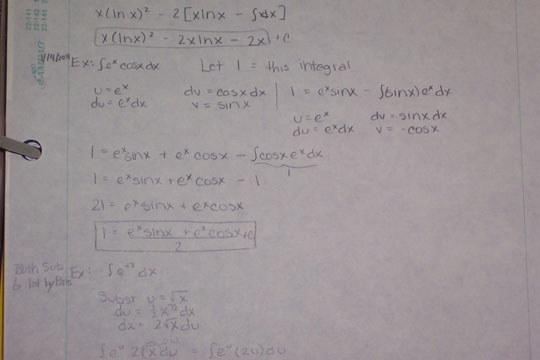 x(lnx)² - 2[xlnx - ∫xdx]
x(lnx)² - 2xlnx - 2x + c
Ex: ∫eˣcosxdx Let I = this integral
u = eˣ dv = cosxdx I = eˣsinx - ∫(sinx)eˣdx
du = eˣdx v = sinx
u = eˣ dv = sinxdx
du = eˣdx v = -cosx
I = eˣsinx + eˣcosx - ∫cosxeˣdx
I
I = eˣsinx + eˣcosx - I
2I = eˣsinx + eˣcosx
I = eˣsinx + eˣcosx + c
2
Both Sub
& Int by Parts
Ex: ∫e^√x dx
Subst u = √x
du = ½x^-½dx
dx = 2√xdu
∫eᵘ 2√xdu = ∫eᵘ(2u)du